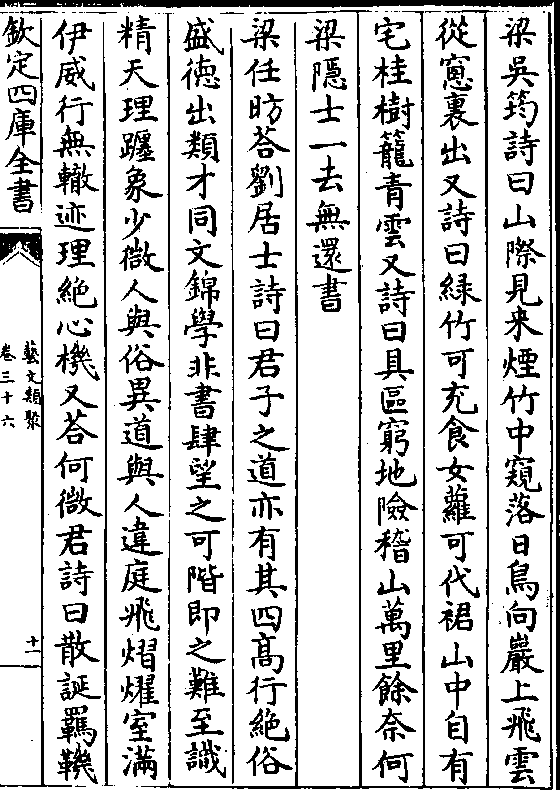 梁吳筠詩曰山際見來煙竹中窺落日鳥向巖上飛雲
從窻裏出又詩曰緑竹可充食女蘿可代裙山中自有
宅桂樹籠青雲又詩曰具區窮地險稽山萬里餘奈何
梁隠士一去無還書
梁任昉荅劉居士詩曰君子之道亦有其四髙行絶俗
盛徳出類才同文錦學非書肆望之可階即之難至識
精天理躔象少微人與俗異道與人違庭飛熠燿室滿
伊威行無轍迹理絶心機又荅何徵君詩曰散誕羈鞿
欽定四庫全書
藝文類聚
卷三十六
十一